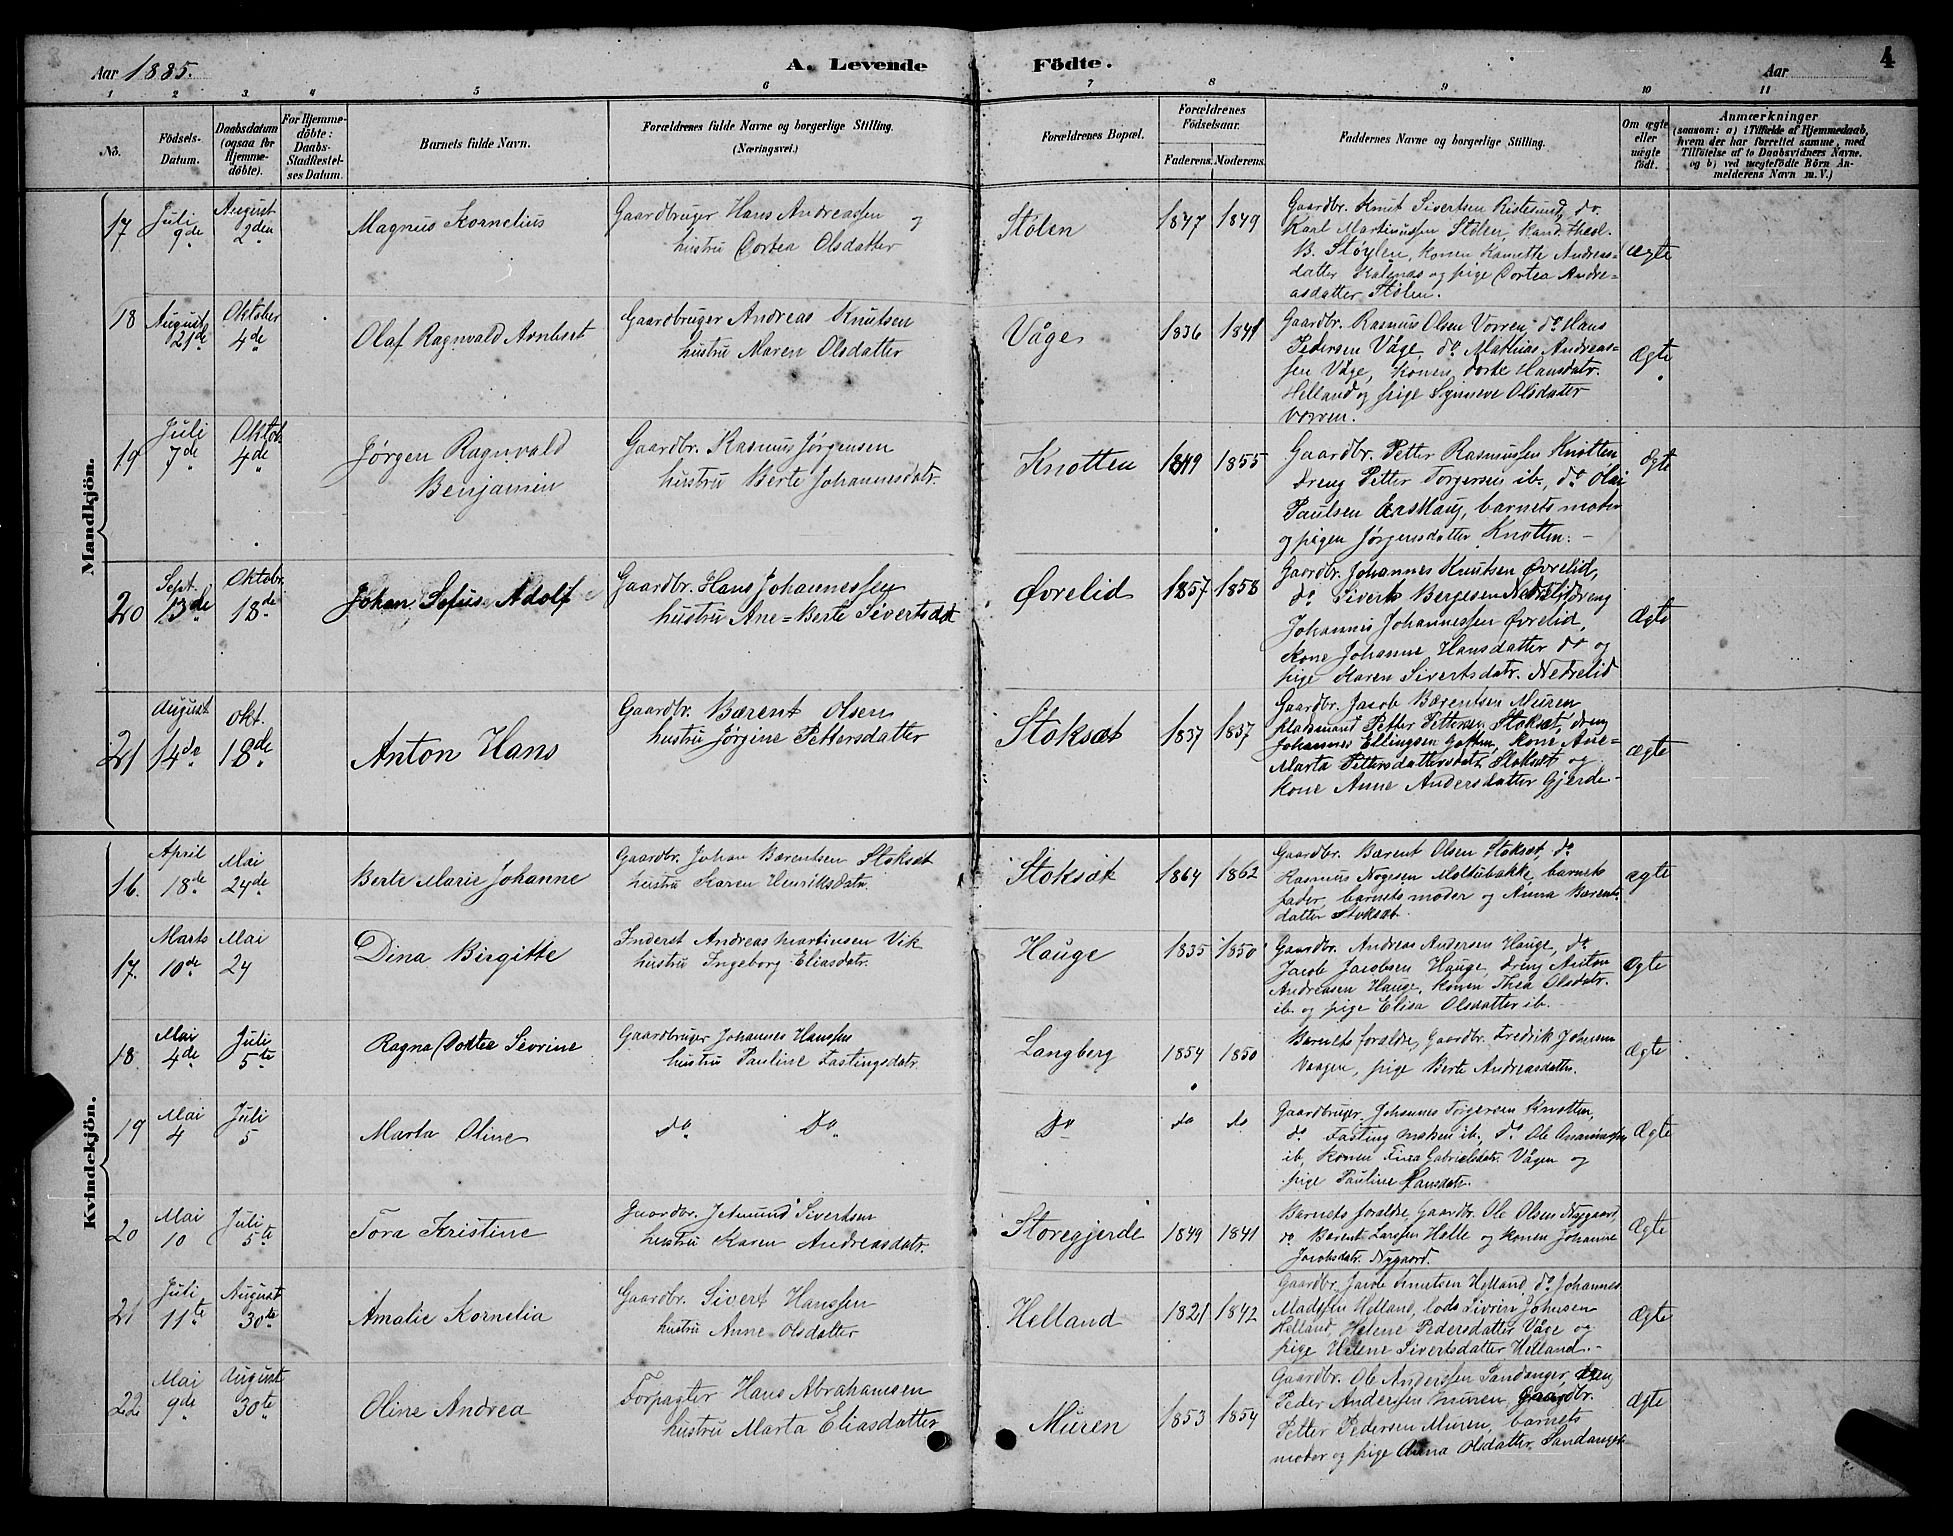 Aar 1885. A. Levende Födte. Aar 4
1 2 3 4 5 6 7 8 9 10 11
No.
Födsels-Datum.
Daabsdatum (ogsaa for Hjemme-döbte).
For Hjemme-döbte: Daabs-Stadfæstel-ses Datum.
Barnets fulde Navn.
Forældrenes fulde Navne og borgerlige Stilling.
(Næringsvei.)
Forældrenes Bopæl.
Forældrenes Födselsaar.
Faderens. Moderens.
Faddernes Navne og borgerlige Stilling.
Om ægte eller uægte födt.
Anmærkninger
(saasom: a) i Tilfælde af Hjemmedaab,
hvem der har forrettet samme, med
Tilföielse af to Daabsvidners Navne.
og b) ved uægtefödte Börn An-
melderens Navn m. V.)
Mandkjön.
17 Juli 9de August 9den Magnus Kornelius
Gaardbruger Hans Andreassen
hustru Dortea Olsdatter
Stølen 1847 1849
Gaardbr. Knut Sivertsen Ristesund, do.
Karl Martinussen Stølen, Kand. theol.
B. Støylen, konen Kanutte Andreas-
datter Kalsnæs og pige Dortea Andre-
asdatter Stølen.
ægte
18 August 21de Oktober 4de Olaf Ragnvald Arnbert
Gaardbruger Andreas Knutsen
hustru Maren Olsdatter
Våge 1836 1841
Gaardbr. Rasmus Olsen Vorren, do Hans
Pedersen Våge, do Mathias Andreas-
sen Våge, konen Dorte Hansdatr.
Helland og pige Synneve Olsdatter
Vorren.
Ægte
19 Juli 7de Oktob. 4de Jørgen Ragnvald
Benjamin
Gaardbr. Rasmus Jørgensen
hustru Berte Johannesdatr.
Knotten 1849 1855
Gaardbr. Petter Rasmussen Knotten
dreng Petter Torgersen ib., do Olai
Paulsen Erskaug, barnets moder
og pigen Jørgensdatter Knotten. -
Ægte
20 Sept. 13de Oktobr. 18de Johan Sefus Adolf
Gaardbr. Hans Johannessen
hustru Ane=Berte Sivertsdat
Øvrelid 1857 1858
Gaardbr. Johannes Knutsen Øvrelid,
do Siverts Bergesen Nedrelid, dreng
Johannes Johannessen Øvrelid,
kone Johanne Hansdatter do og
pige Karen Sivertsdatr. Nedrelid
Ægte
21 August 14de Okt. 18de Anton Hans
Gaardbr. Bærent Olsen
hustru Jørgine Pettersdatter
Stoksæt 1837 1857
Gaardbr. Jacob Bærentsen Muren
pladsmand Petter Pettersen Stoksæt, dreng
Johannes Ellingsen Goften, kone Ane=
Marta Pettersdatter Stoksæt og
kone Anne Andersdatter Gjerde -
ægte
Kvindekjön.
16. April 18de Mai 24de Berte Marie Johanne
Gaardbr. Johan Bærentsen Stoksæt
hustru Karen Henriksdatr.
Stoksæt 1864 1862
Gaardbr. Bærent Olsen Stoksæt, do
Rasmus Nogvsen Moltubakke, barnets
fader, barnets moder og Anna Bærents-
datter Stoksæt.
ægte
17. Marts 10de Mai 24 Dina Birgitte
Inderst Andreas Martinsen Vik
hustru Ingeborg Eliasdatr.
Hauge 1835 1850
Gaardbr. Andreas Andersen Hauge, do
Jacob Jacobsen Hauge, dreng Anton
Andreasen Hauge, konen Thea Olsdatr.
ib. og pige Elisa Olsdatter ib.
Ægte
18. Mai 4de Juli 5te Ragna Dortea Sevrine
Gaardbruger Johannes Hanssen
hustru Pauline Fastingsdatr.
Langberg 1854 1850
Barnets forældre, Gaardbr. Fredrik Johnsen
Vaagen, pige Berte Andreasdatter.
Ægte
19 Mai 4 Juli 5 Marta Oline
do do
Do do do
Gaardbruger Johannes Torgersen Knotten,
do Fasting ib., do Ole
ib, konen Fina Gabrielsdatr. Vågen og
pige Pauline Hansdatr.
Ægte
20 Mai 10 Juli 5te Tora Kristine
Gaardbr. Jetmund Sivertsen
hustru Karen Andreasdatr.
Storegjerde 1849 1841
Barnets forældre, Gaardbr. Ole Olsen Nygaard,
do Bærent Larssen Halle og konen Johanne
Jacobsdatr. Nygaard.
Ægte
21 Juli 11te August 30te Amalie Kornelia
Gaardbr. Sivert Hanssen
hustru Anne Olsdatter
Helland 1821 1842
Gaardbr. Jacob Knutsen Helland, do Johannes
Madssen Helland, lods Sivrin Johnsen
Helland, Helene Pedersdatter Våge og
pige Helene Sivertsdatter Helland. -
Ægte
22 Mai 9de August 30te Oline Andrea
Forpagter Hans Abrahamsen
hustru Marta Eliasdatter
Muren 1853 1854
Gaardbr. Ole Anderssen Sandanger, dreng
Peder Anderssen Muren, Gaardbr.
Petter Pedersen Muren, barnets
moder og pige Anna Olsdatter, Sandanger
Ægte